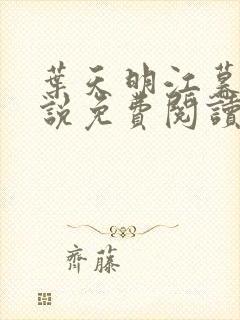 葉天明江幕
說免費閱讀
齊藤